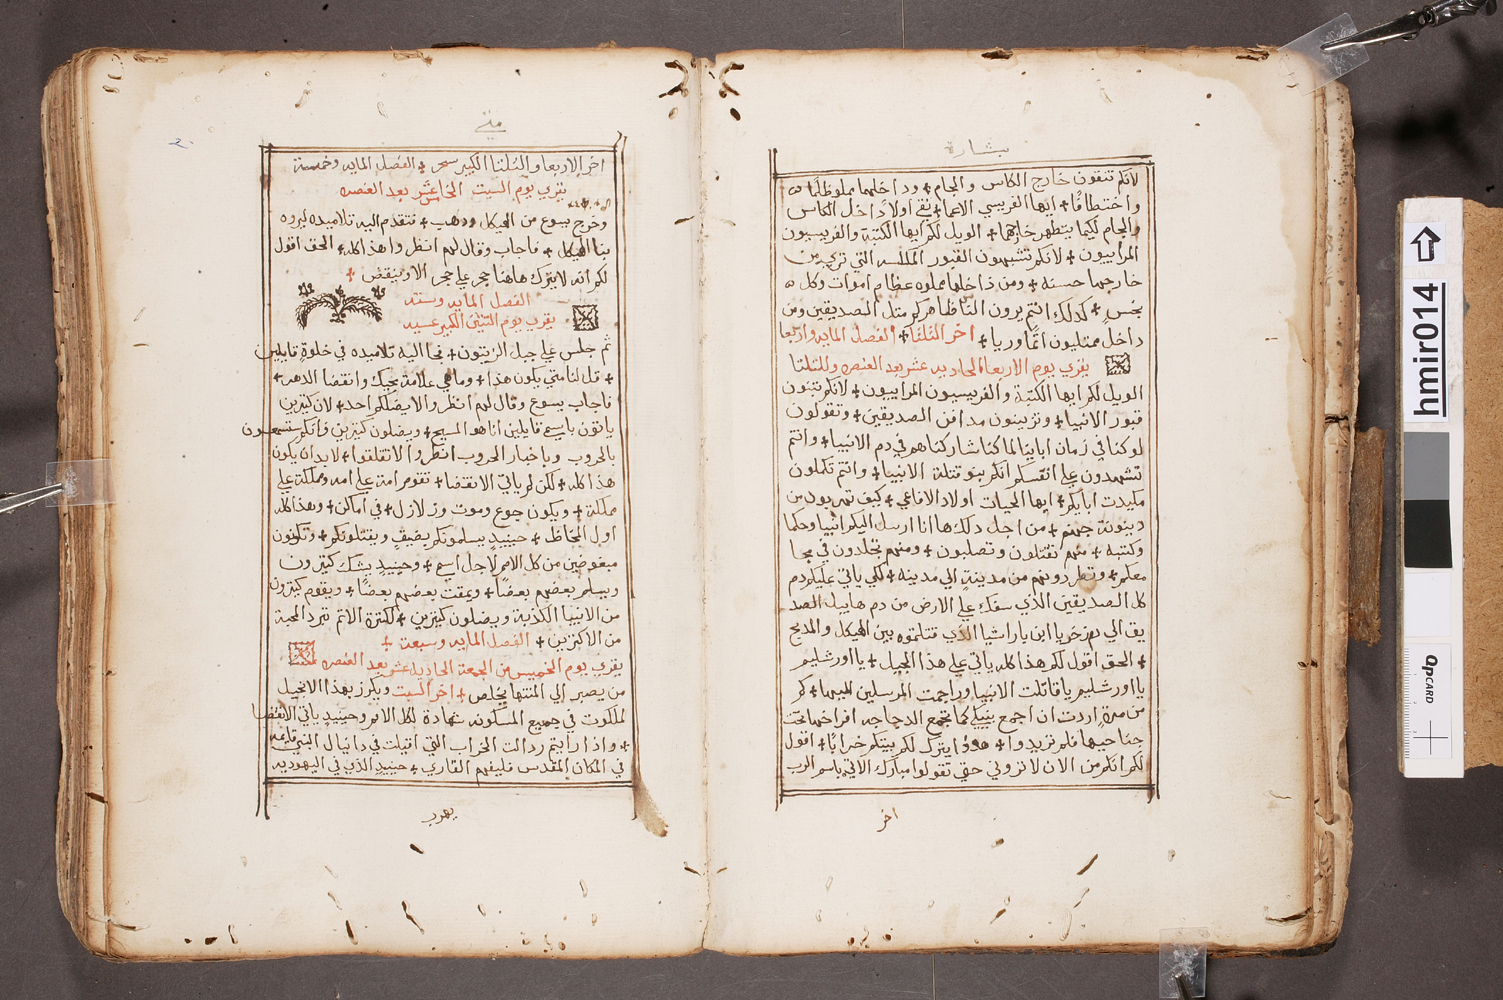 بشارة
لانكم تنقون خارج الكاس والجام + وداخلهما مملو ظلمًا
واختطافًا + ايها الفريسي الاعما + نقي اولاً داخل الكاس
والجام لكيما يتطهر خارجهما + الويل لكم ايها الكتبة والفريسيون
المراييون + لانكم تشبهون القبور المكلسه التي تري من
خارجها حسنه + ومن داخلها مملوه عظام اموات وكل
نجسٍ + كذلك انتم يرون الناس ظاهركم مثل الصديقين ومن
داخل ممتليون اثمًا وريا + اخر الثلثا + الفصل المايه واربعا
يقري يوم الاربعا الحاديه عشر بعد العنصره وللثلثا
الويل لكم ايها الكتبة والفريسيون المراييون + لانكم تبنون
قبور الانبيا + وتزينون مدافن الصديقين + وتقولون
لو كنا في زمان ابايِنا لما كنا شاركناهم في دم الانبيا + وانتم
تشهدون علي انفسكم انكم بنو قتلة الانبيا + وانتم تكملون
مكيدت ابايكم + ايها الحيات اولاد الافاعي + كيف تهربون من
دينونة جهنم + من اجل ذلك ها انا ارسل اليكم انبيا وحكما
وكتبه + منهم تقتلون وتصلبون + ومنهم تجلدون في مجا
معكم + وتطردونهم من مدينةٍ الي مدينه + لكي ياتي عليكم دم
كل الصديقين الذي سفك علي الارض من دم هابيل الصد
يق الي دم زخريا ابن باراشيا الذي قتلتموه بين الهيكل والمذبح
+ الحق اقول لكم هذا كله ياتي علي هذا الجيل + يا اورشليم
يا اورشليم يا قاتلت الانبيا وراجمت المرسلين اليها + كم
من مرةٍ اردت ان اجمع بنيكي كما تجمع الدجاجه افراخها تحت
جناحيها فلم تريدوا + هوذا يترك لكم بيتكم خرابًا + اقول
لكم انكم من الان لا تروني حتي تقولوا مبارك الاتي باسم الرب
اخر
متي
اخر الاربعا والثلثا الكبير سحر + الفصل المايه وخمسة
يقري يوم السبت الخامس عشر بعد العنصره
وخرج يسوع من الهيكل وذهب + فتقدم اليه تلاميذه ليروه
بنا الهيكل + فاجاب وقال لهم انظروا هذا كله + الحق اقول
لكم انه لا يترك هاهنا حجر علي حجر الا وينقض +
الفصل المايه وسته
يقري يوم الثنين الكبير عشيه
ثم جلس علي جبل الزيتون + فجا اليه تلاميذه في خلوةٍ قايلين
+ قل لنا متي يكون هذا + وما هي علامة مجيك وانقضا الدهر +
فاجاب يسوع وقال لهم انظروا لا يضلكم احد + لان كثيرين
ياتون باسمي قايلين انا هو المسيح + ويضلون كثيرين فانكم ستسمعون
بالحروب وباخبار الحروب انظروا لا تقلقوا + لا بد ان يكون
هذا كله + لكن لم ياتي الانقضا + تقوم امة علي امه ومملكة علي
مملكة + ويكون جوع وموت وزلازل + في اماكن + وهذا كله
اول المخاظ + حينيذٍ يسلمونكم بضيقٍ ويقتلونكم + وتكونون
مبغوضين من كل الامم لاجل اسمي + وحينيذٍ يشك كثيرون
ويسلم بعضهم بعضًا + ويمقت بعضهم بعضًا + ويقوم كثيرون
من الانبيا الكذبة ويضلون كثيرين + لكثرة الاثم تبرد المحبة
من الاكثرين + الفصل المايه وسبعة +
يقري يوم الخميس من الجمعة الحاديه عشر بعد العنصره
من يصبر الي المنتها يخلص + اخر السبت ويكرز بهذا الانجيل
لملكوت في جميع المسكونه شهادة لكل الامم وحينيذٍ ياتي الانقضا
+ واذا رايتم رذالت الخراب التي اقيلت في دانيال النبي قايمه
في المكان المقدس فليفهم القاري + حينيذ الذي في اليهوديه
يهرب
hmir014
OpCARD